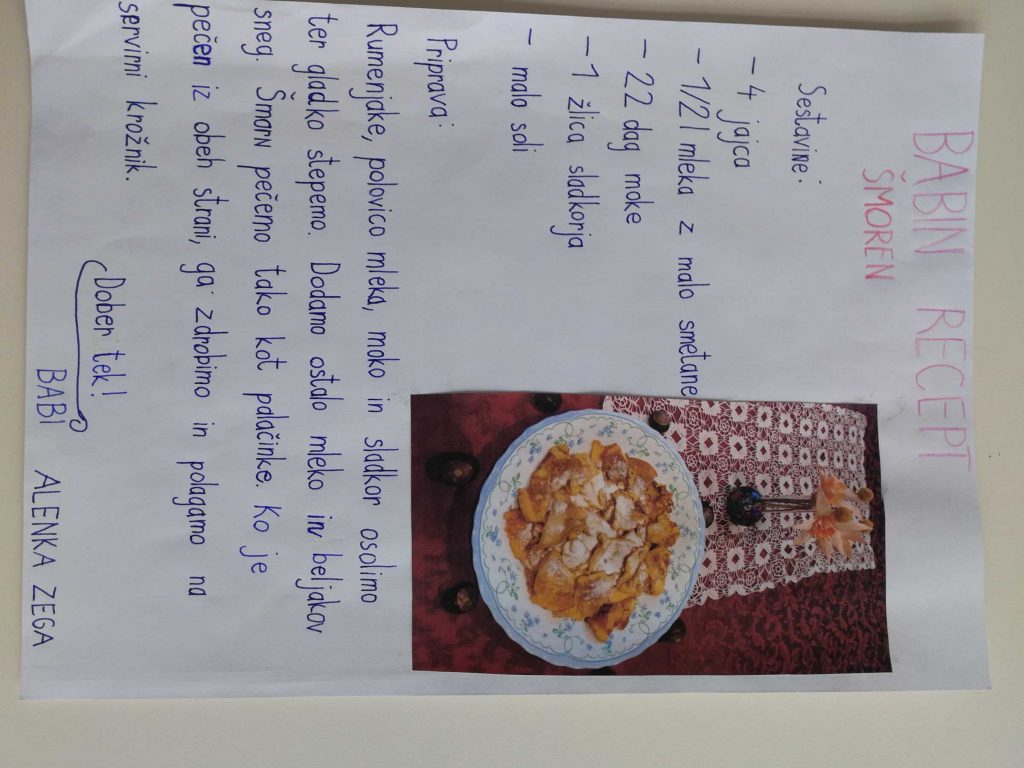 BABIN RECEPT
ŠMOREN
Sestavine:
- 4 jajca
- 1/2 l mleka z malo smetane
- 22 dag moke
- 1 žlica sladkorja
- malo soli
Priprava:
Rumenjake, polovico mleka, moko in sladkor osolimo
ter gladko stepemo. Dodamo ostalo mleko in beljakov
sneg. Šmarn pečemo tako kot palačinke. Ko je
pečen iz obeh strani, ga zdrobimo in polagamo na
servirni krožnik.
Dober tek!
BABI ALENKA ZEGA